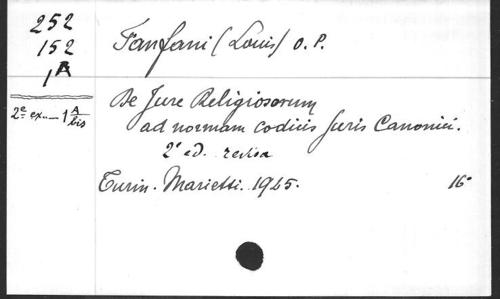 252
152
1A
2e ex. — 1 A/bis
Fanfani (Louis) O.P.
De Jure Religiosorum
ad normam codicis Juris Canonici.
2e ed. revisa
Turin. Marietti. 1925. 16°